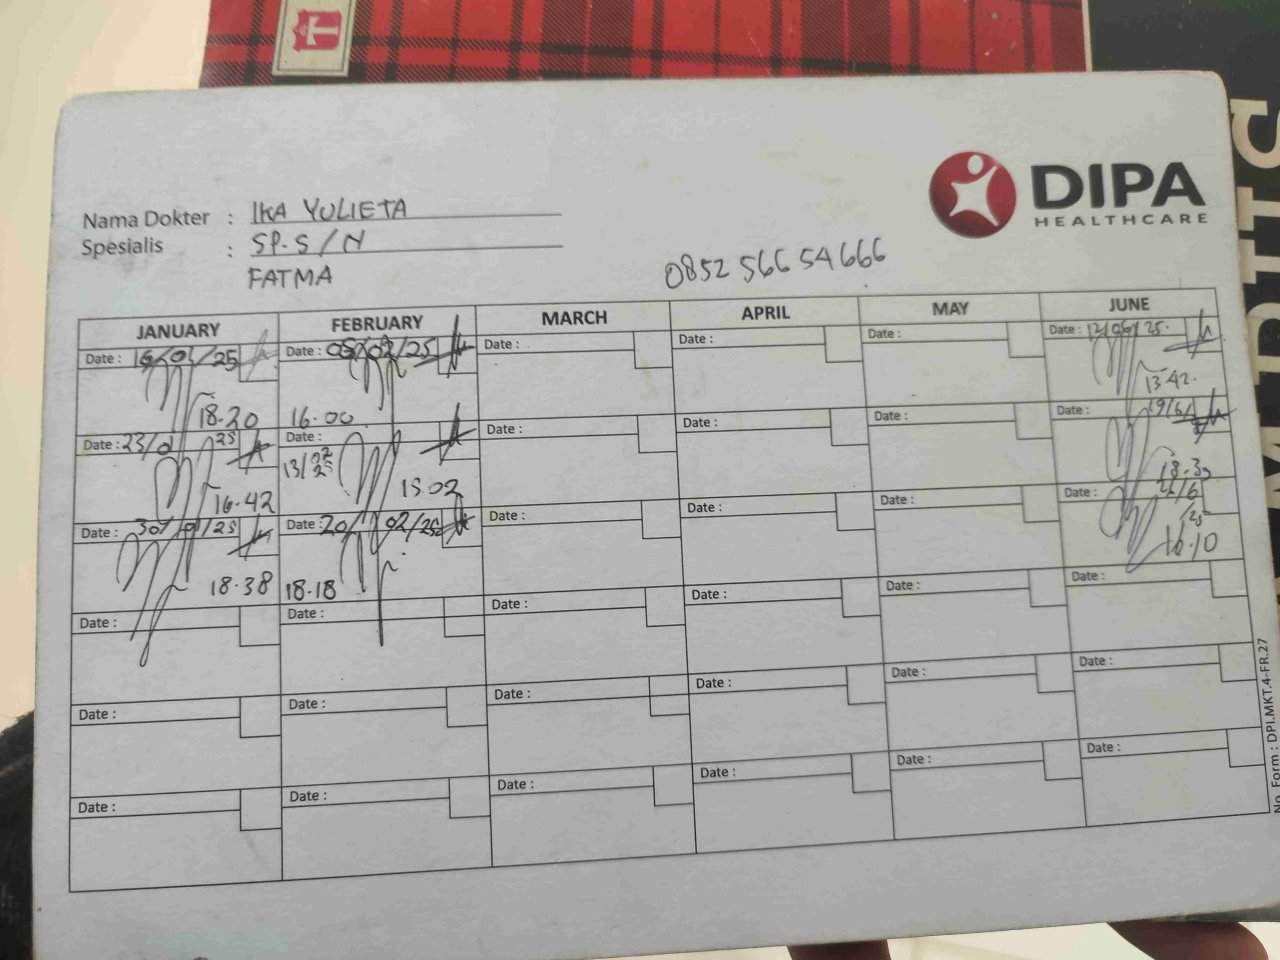 DIPA
HEALTHCARE
Nama Dokter : IKA YULIETA
Spesialis : SP.S/N
FATMA
0852 566 54666
JANUARY FEBRUARY MARCH APRIL MAY JUNE
Date : 16/01/25 Date : 05/02/25 Date : Date : Date : Date : 12/06/25.
18.20 16.00 13.42.
Date : 23/01 25 Date : 13/02 25 Date : Date : Date : Date : 19/6/
16.42 15.02 18.30
Date : 30/01/25 Date : 20/02/25 Date : Date : Date : Date : /6/25
18.38 18.18 16.10
Date : Date : Date : Date : Date : Date :
Date : Date : Date : Date : Date : Date :
Date : Date : Date : Date : Date : Date :
No. Form : DPI.MKT.4-FR.27